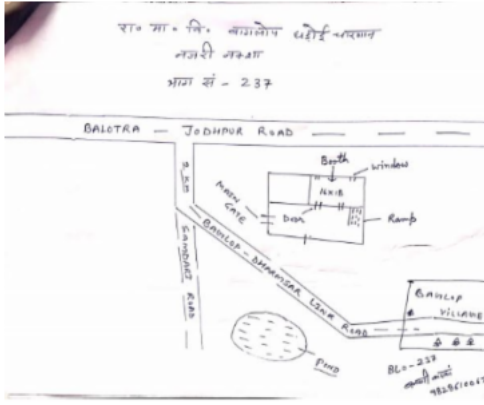 रा० मा० वि० बागलोप
नजरी नक्शा
भाग सं - 237
BALOTRA - JODHPUR ROAD
Booth
window
2 KM
MAIN GATE
Door
Ramp
SAMDARI ROAD
BAGLOP - DHARMSAR LINK ROAD
BAGLOP VILLAGE
POND
BLO - 237